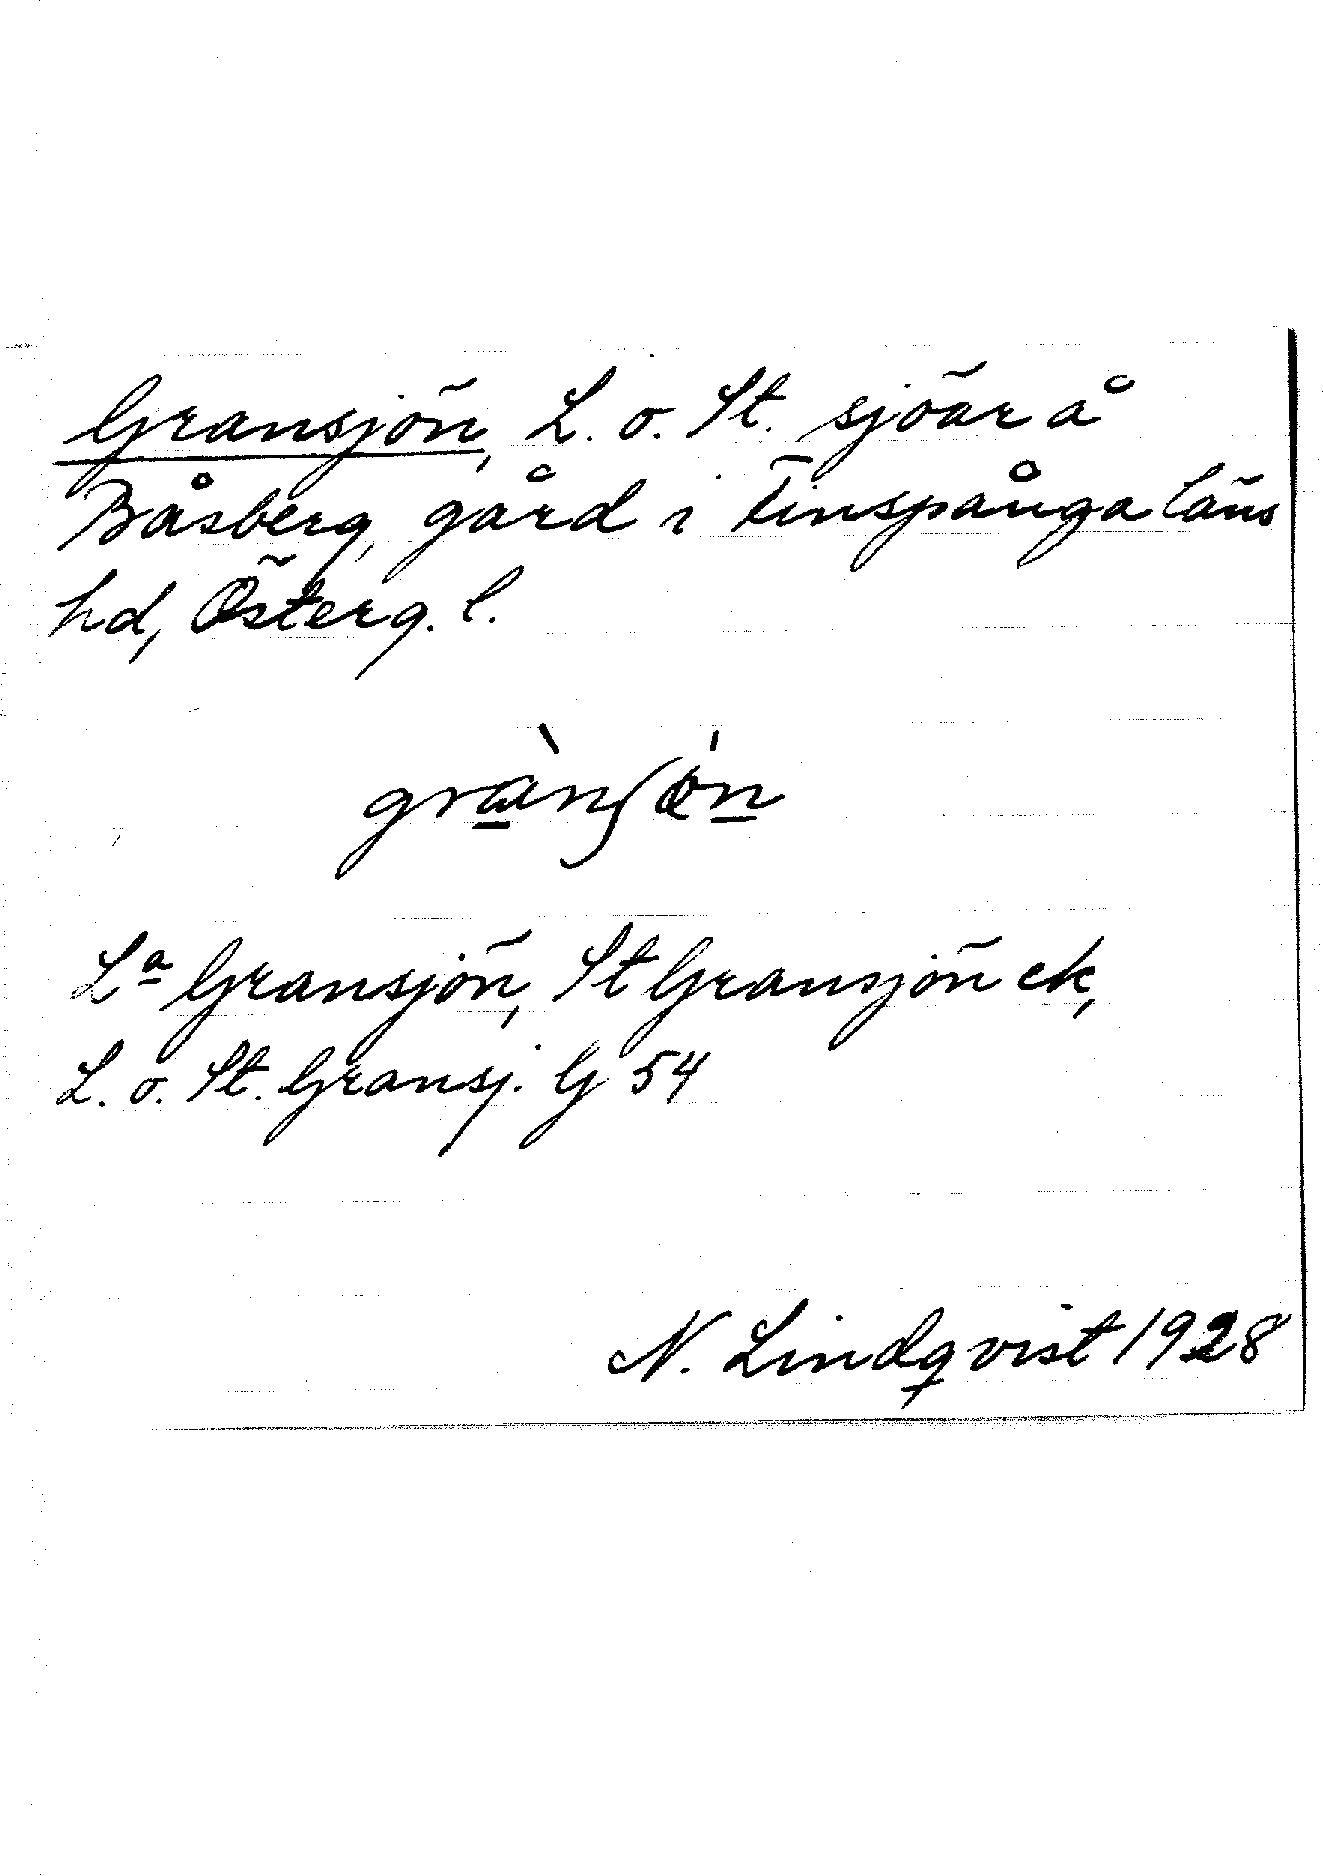 Gransjön, L. o. St. sjöar å
Båsberg, gård i Finspånga läns
hd, Österg. l.
grànʃön
La Gransjön, St Gransjön ek,
L. o. St. Gransj. G 54
N. Lindqvist 1928